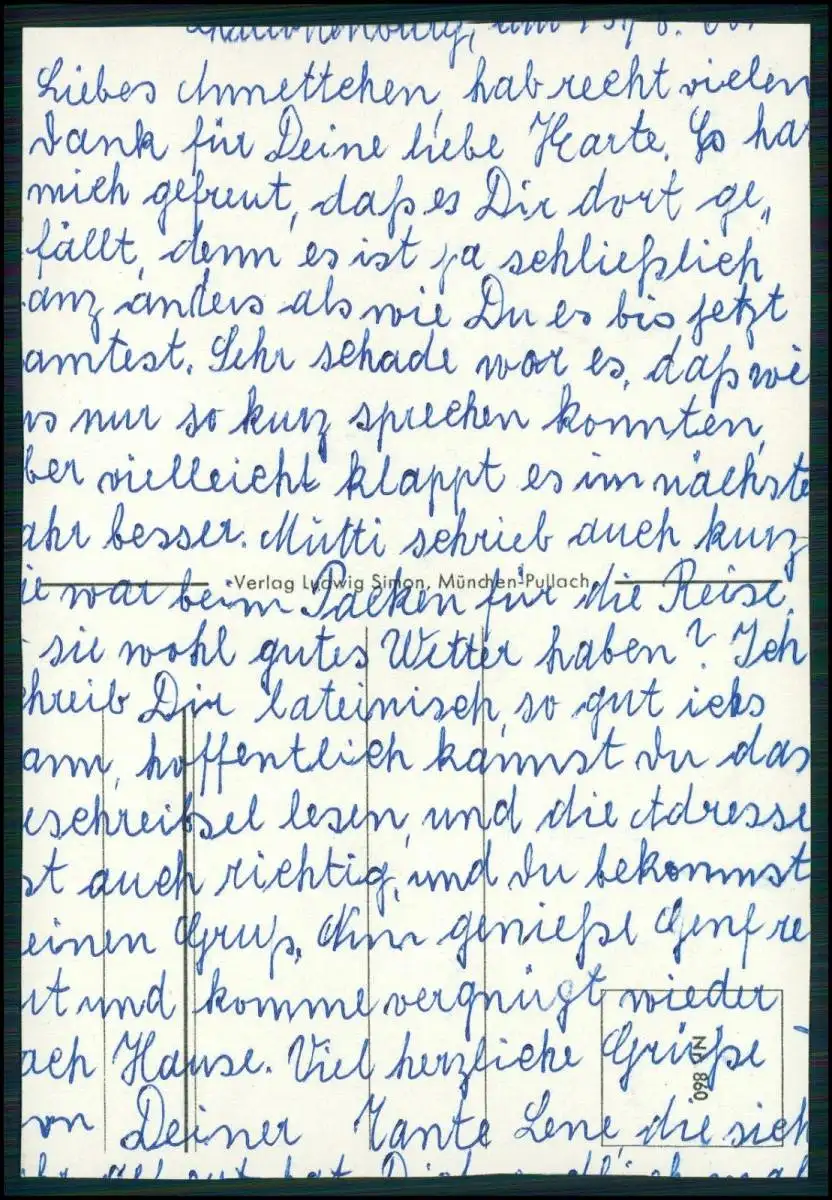 Liebes Annettchen, hab recht vielen
Dank für Deine liebe Karte. Es ha
mich gefreut, daß es Dir dort ge„
fällt, denn es ist ja schließlich
anz anders als wie Du es bis jetzt
anntest. Sehr schade war es, daß wi
s nur so kurz sprechen konnten,
ber vielleicht klappt es im nächste
ahr besser. Mutti schrieb auch kurz
ie war beim Packen für die Reise,
Verlag Ludwig Simon, München-Pullach
sie wohl gutes Wetter haben? Ich
hreib Dir lateinisch, so gut ichs
ann, hoffentlich kannst Du das
eschreibsel lesen, und die Adresse
st auch richtig, und Du bekommst
einen Gruß. Nun genieße Genf re
ht und komme vergnügt wieder
ach Hause. Viel herzliche Grüße
on Deiner Tante Lene, die sich
098 VN